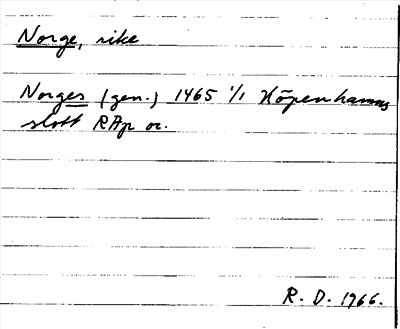 Norge, rike
Norges (gen.) 1465 1/1 Köpenhamns
slott RAp or.
R. D. 1966.